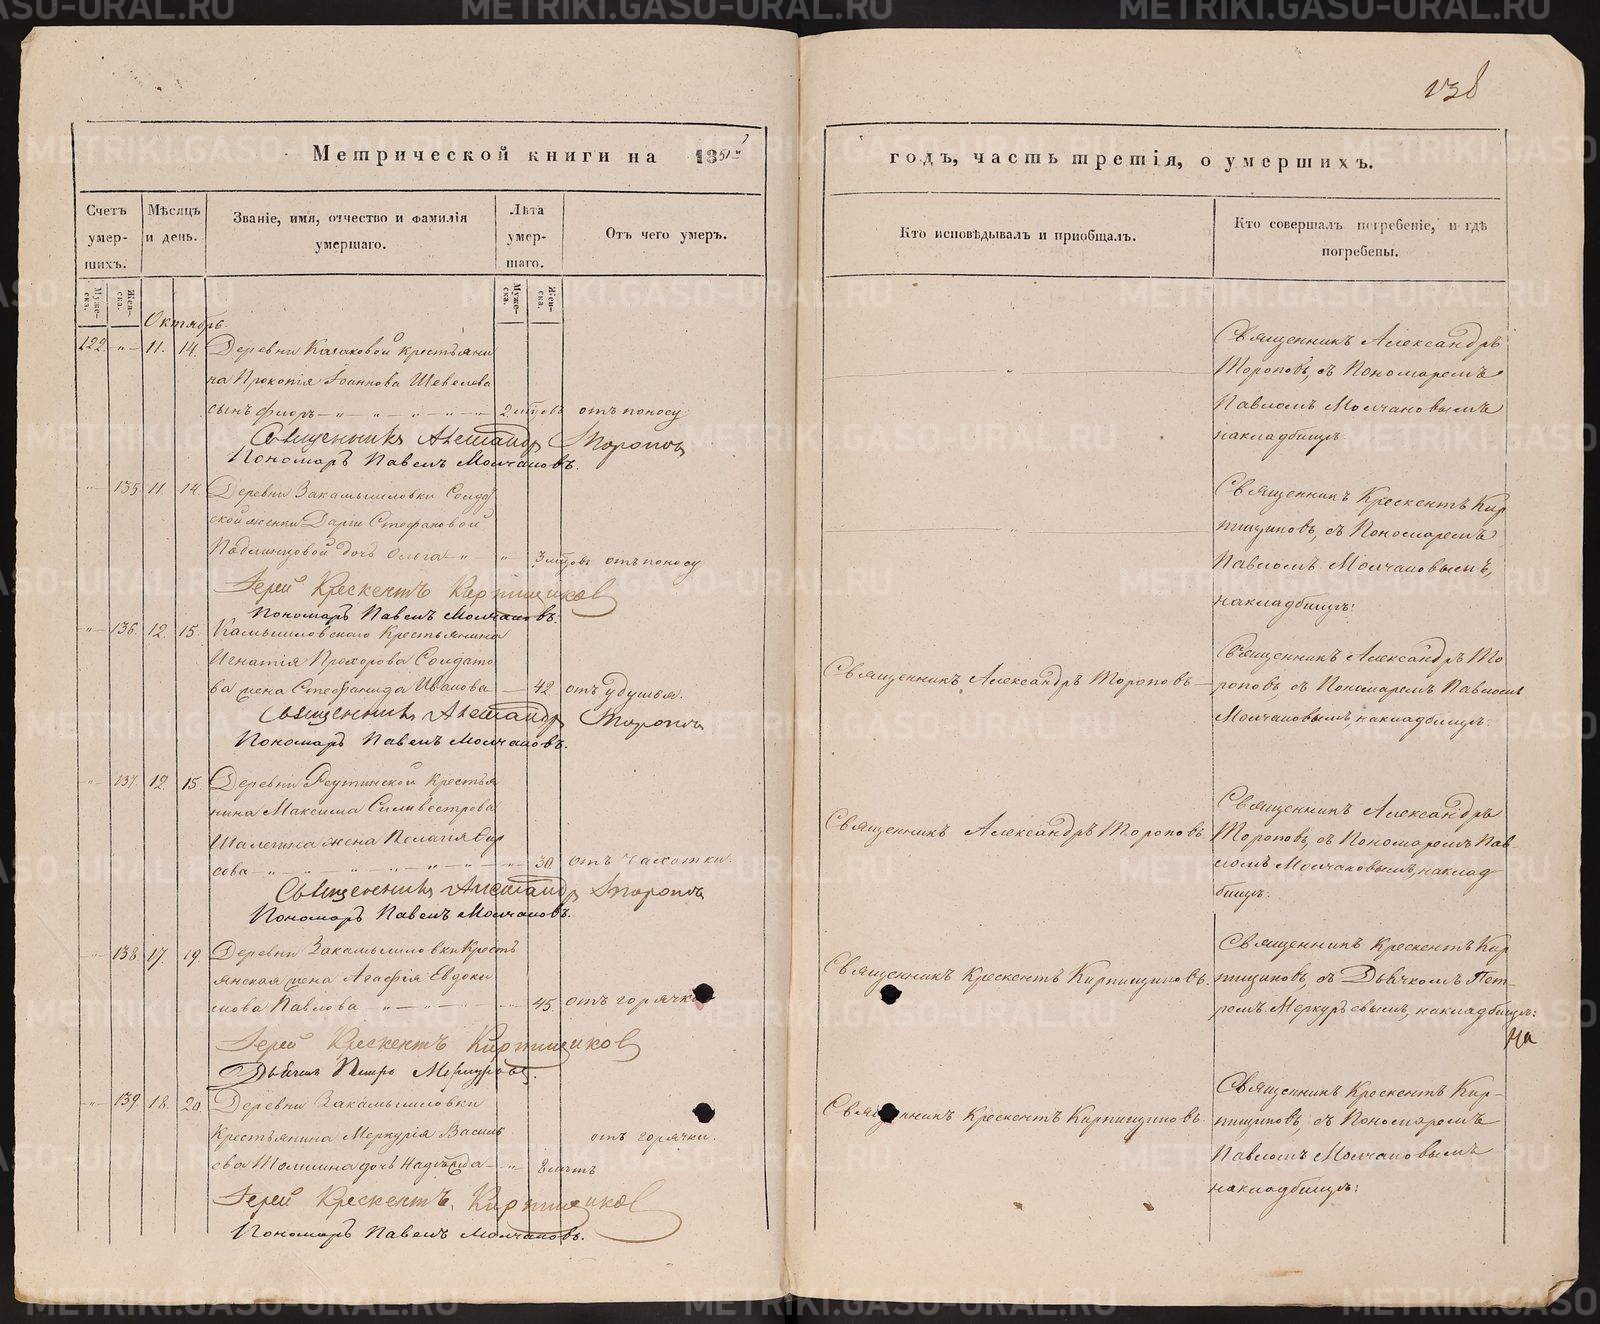 138
Метрической книги на 1851й
годъ, часть третія, о умершихъ.
Счетъ умер-шихъ.
Мѣсяцъ и день.
Званіе, имя, отчество и фамилія умершаго.
Лѣта умер-шаго.
Отъ чего умеръ.
Кто исповѣдывалъ и пріобщалъ.
Кто совершалъ погребеніе, и гдѣ погребены.
Муже-ска.
Жен-ска.
Муже-ска.
Жен-ска.
Октябрь
122 11. 14. Деревни Казаковой крестьяни
на Прокопія Іоаннова Шевелева
сынъ Флоръ 2 мцовъ отъ поносу
Священникъ Александръ Торопов
Пономарь Павелъ Молчановъ.
Священникъ Александръ
Тороповъ, съ Пономаремъ
Павломъ Молчановымъ
накладбищѣ.
135 11. 14. Деревни Закамышловки Солдат
ской женки Дарьи Стефановой
дочь Ольга 3 мцовъ отъ поносу
Іерей Крескентъ Кирпищиковъ
Пономарь Павелъ Молчановъ.
Священникъ Крескентъ Кир
пищиковъ, съ Пономаремъ
Павломъ Молчановымъ,
накладбищѣ:
136. 12. 15. Камышловскаго Крестьянина
Игнатія Прохорова Солдато
ва жена Стефанида Иванова 42 отъ удушья.
Священникъ Александръ Торопов
Пономарь Павелъ Молчановъ.
Священникъ Александръ Тороповъ
Священникъ Александръ То
роповъ, съ Пономаремъ Павломъ
Молчановымъ, накладбищѣ.
137. 12. 15. Деревни Реутинской Крестья
нина Максима Силивестрова
Шалегина жена Пелагія
сова 30 отъ чахотки.
Священникъ Александръ Торопов
Пономарь Павелъ Молчановъ.
Священникъ Александръ Тороповъ
Священникъ Александръ
Тороповъ, съ Пономаремъ Пав-
ломъ Молчановымъ, наклад
бищѣ.
138 17 19. Деревни Закамышловки Кресть
янская жена Агафія Евдоки
мова Павлова 45. отъ горячки
Іерей Крескентъ Кирпищиковъ
Дьячекъ Петръ Меркурьевъ.
Священникъ Крескентъ Кирпищиковъ.
Священникъ Крескентъ Кир
пищиковъ, съ Дьячкомъ Пет-
ромъ Меркурьевымъ, накладбищѣ:
139. 18. 20. Деревни Закамышловки
Крестьянина Меркурія Василь
ева дочь Надежда 2 лѣтъ отъ горячки.
Іерей Крескентъ Кирпищиковъ
Пономарь Павелъ Молчановъ.
Священникъ Крескентъ Кирпищиковъ.
Священникъ Крескентъ Кир-
пищиковъ, съ Пономаремъ
Павломъ Молчановымъ
накладбищѣ:
METRIKI.GASO-URAL.RU